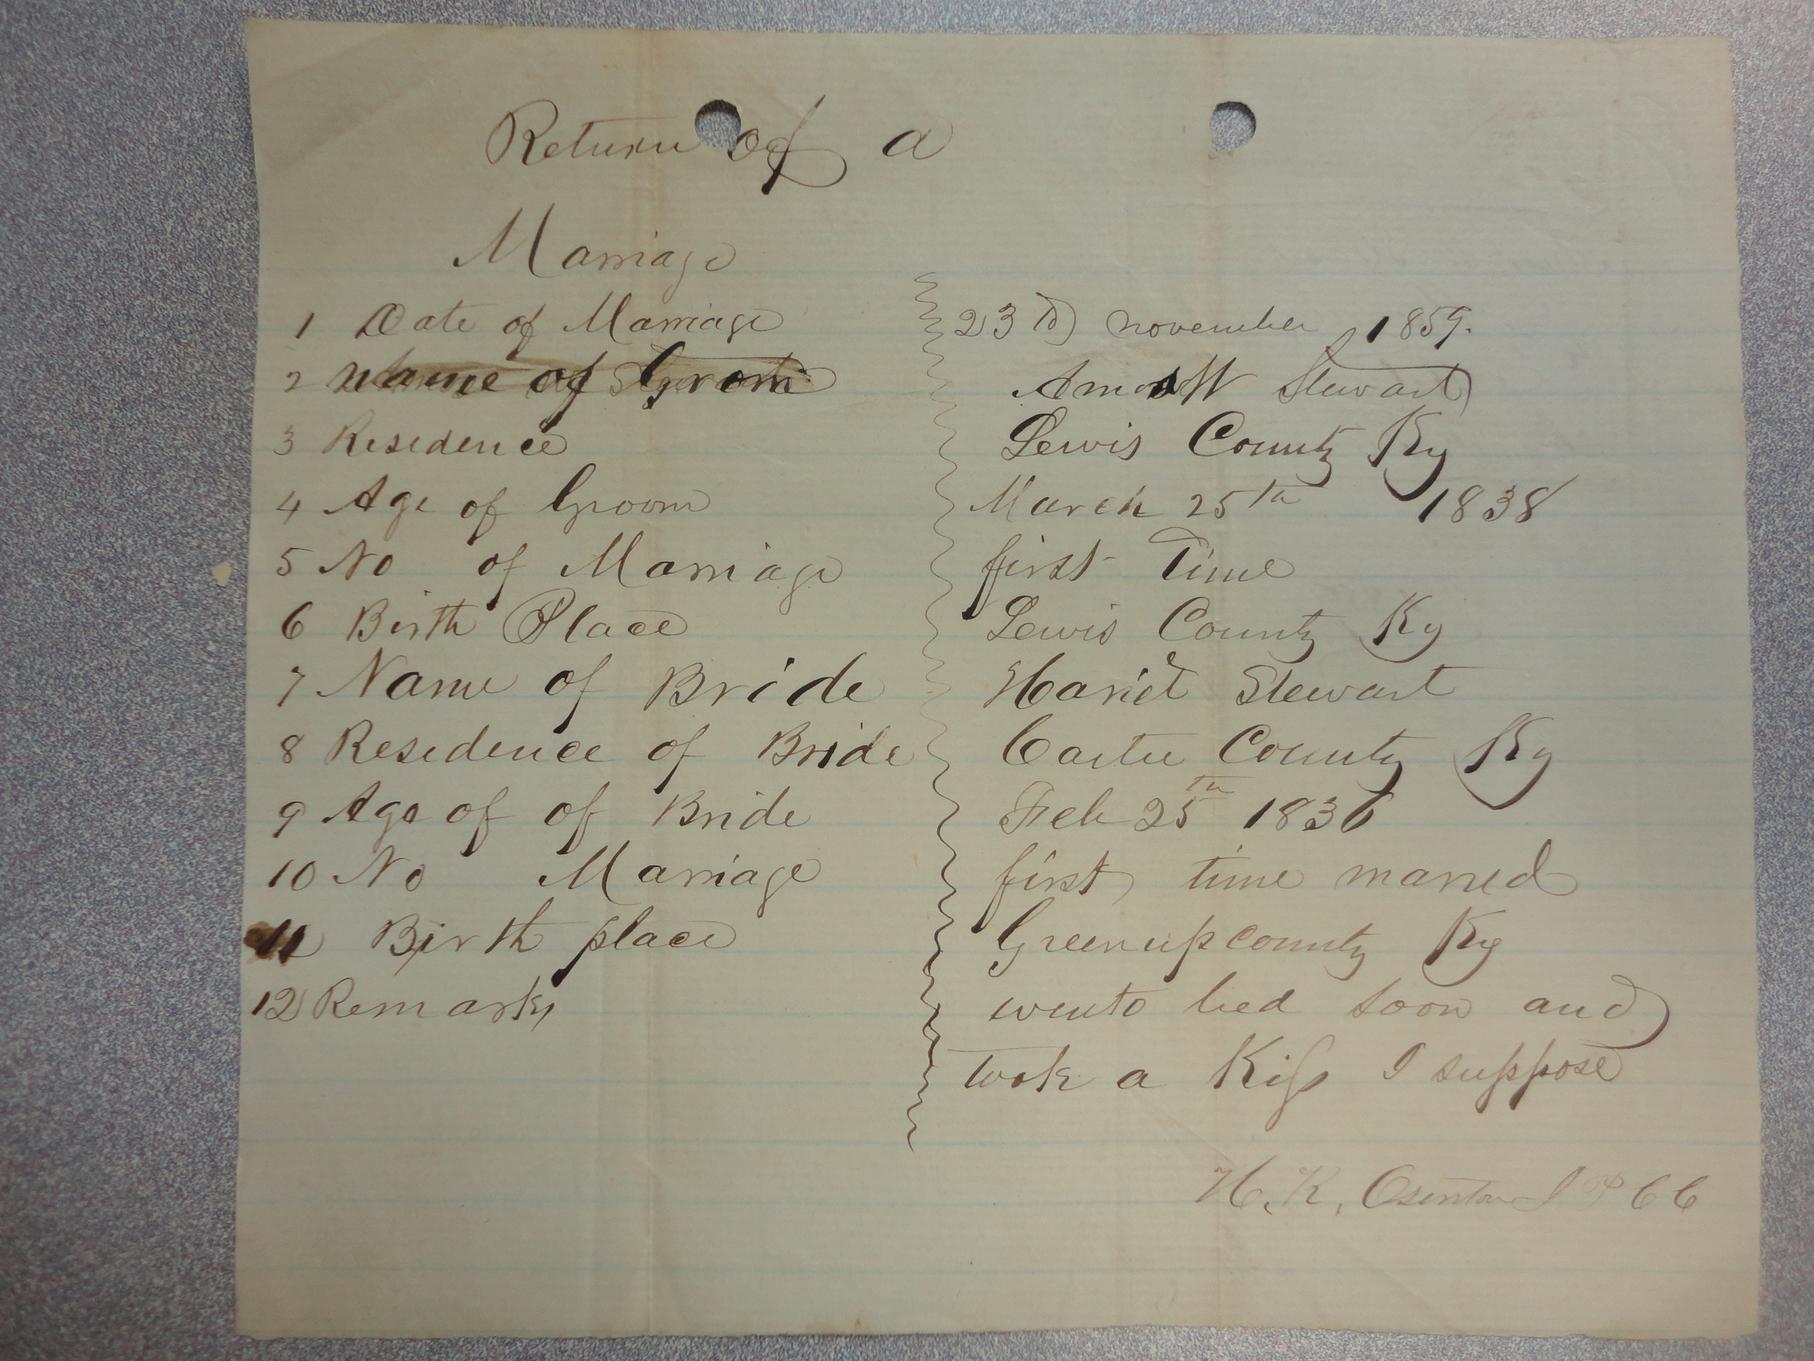 Return of a
Marriage
1 Date of Marriage 23 th november 1859.
2 Name of Groom Stewart
3 Residence Lewis County Ky
4 Age of Groom March 25th 1838
5 No of Marriage first Time
6 Birth Place Lewis County Ky
7 Name of Bride Hariet Stewart
8 Residence of Bride Carter County Ky
9 Age of of Bride Feb 25th 1836
10 No Marriage first time marred
11 Birth place Greenup county Ky
12 Remarks wento bed soon and
took a Kiss I suppose
H. K. Osenton J P C C